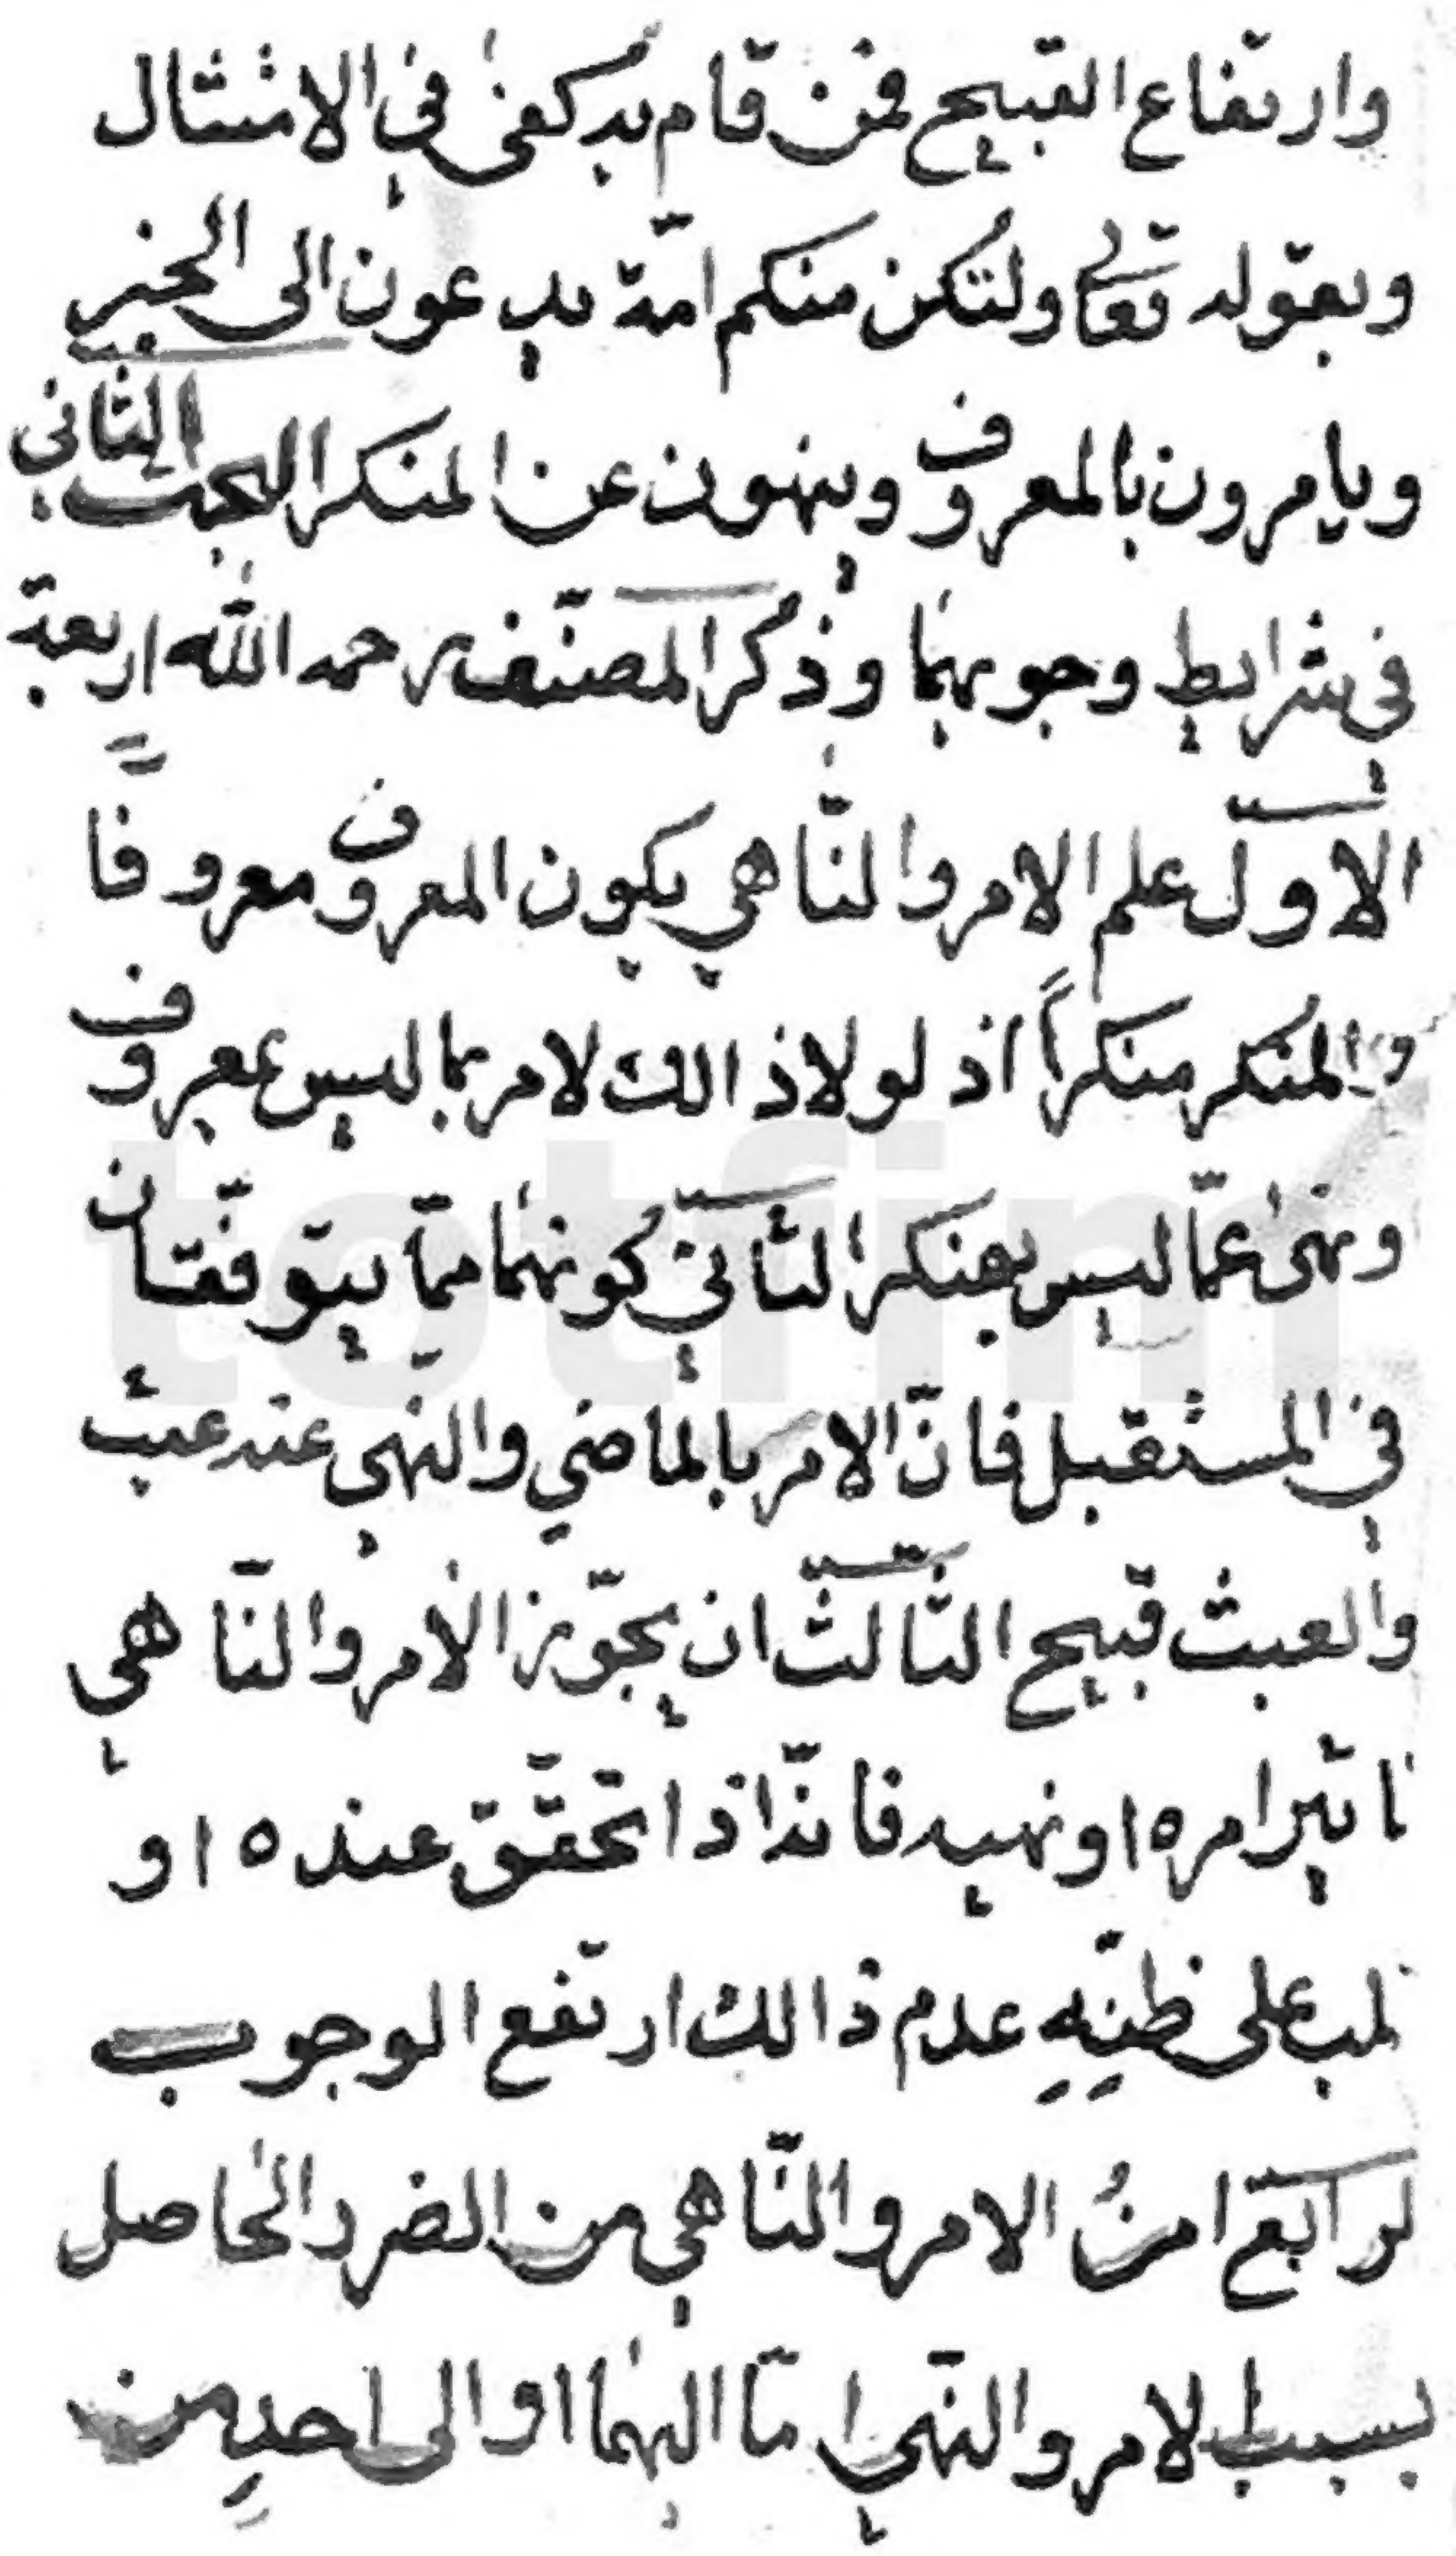 وارتفاع القبيح فمن قام به كفى في الامتثال
وبقوله تعالى ولتكن منكم امة يدعون الى الخير
ويامرون بالمعروف وينهون عن المنكر البحث الثاني
في شرايط وجوبهما وذكر المصنّف رحمه الله اربعة
الاول علم الامر والنّاهي يكون المعروف معروفًا
والمنكر منكراً اذ لولا ذالك لامر بما ليس بمعروف
ونهى عمّا ليس بمنكر الثاني كونهما ممّا يتوقّعان
في المستقبل فانّ الامر بالماضي والنهي عنه عبث
والعبث قبيح الثّالث ان يجوّز الامر والنّاهي
تاثير امره او نهيه فانّه اذا تحقّق عنده او
لب على ظنّه عدم ذالك ارتفع الوجوب
لرابع امنُ الامر والنّاهي من الضرر الحاصل
بسبب الامر والنّهي امّا اليهما او الى احدٍ من
totfim